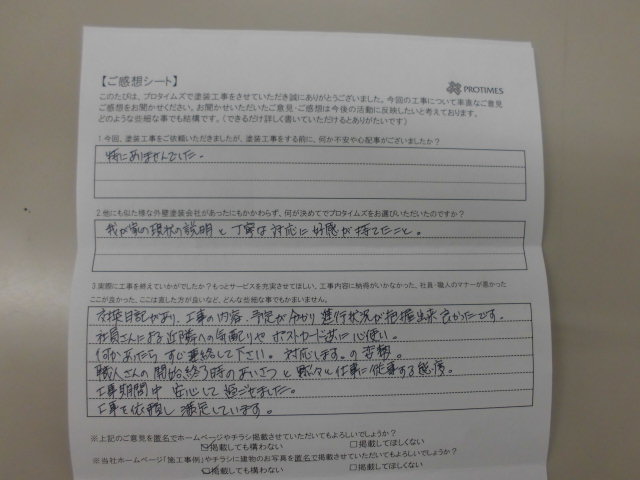 【ご感想シート】
PROTIMES
このたびは、プロタイムズで塗装工事をさせていただき誠にありがとうございました。今回の工事について率直なご意見
ご感想をお聞かせください。お聞かせいただいたご意見・ご感想は今後の活動に反映したいと考えております。
どのような些細な事でも結構です。（できるだけ詳しく書いていただけるとありがたいです）
1 今回、塗装工事をご依頼いただきましたが、塗装工事をする前に、何か不安や心配事がございましたか？
特にありませんでした。
2 他にも似た様な外壁塗装会社があったにもかかわらず、何が決めてでプロタイムズをお選びいただいたのですか？
我が家の現状の説明と丁寧な対応に好感が持てたこと。
3 実際に工事を終えていかがでしたか？もっとサービスを充実させてほしい、工事内容に納得がいかなかった、社員・職人のマナーが悪かった
ここが良かった、ここは直した方が良いなど、どんな些細な事でもかまいません。
日記があり、工事の内容、予定が分かり進行状況が把握出来良かったです。
社員さんによる近隣への気配りやポストカード
何かあったらすぐ連絡して下さい。対応します。の姿勢。
職人さんの開始、終了時のあいさつと黙々と仕事に従事する態度。
工事期間中安心して過ごせました。
工事を依頼し満足しています。
※上記のご意見を匿名でホームページやチラシ掲載させていただいてもよろしいでしょうか？
☑掲載しても構わない　□掲載してほしくない
※当社ホームページ「施工事例」やチラシに建物のお写真を匿名で掲載させていただいてもよろしいでしょうか？
☑掲載しても構わない　□掲載してほしくない